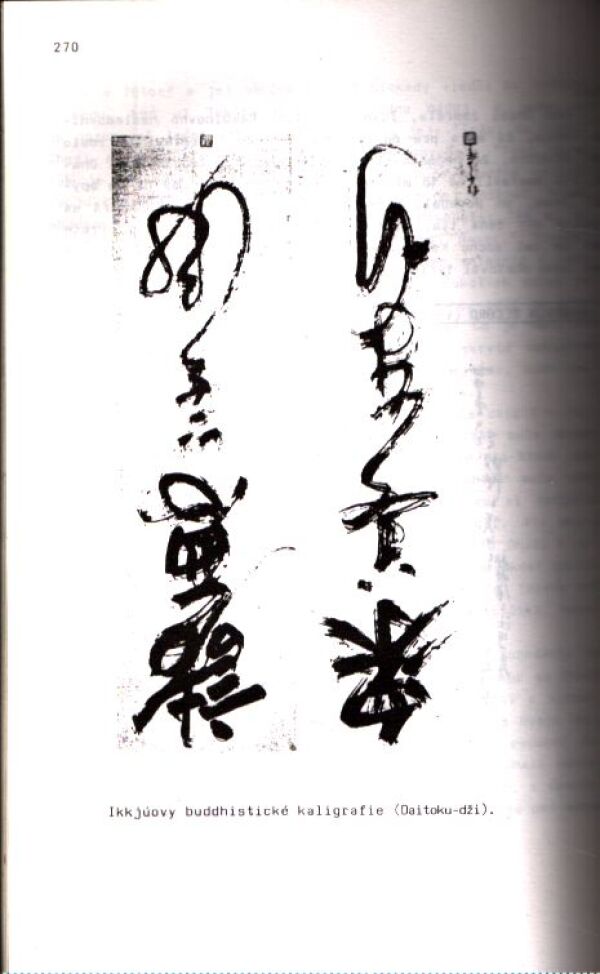 270
諸悪莫作
衆善奉行
Ikkjúovy buddhistické kaligrafie (Daitoku-dži).